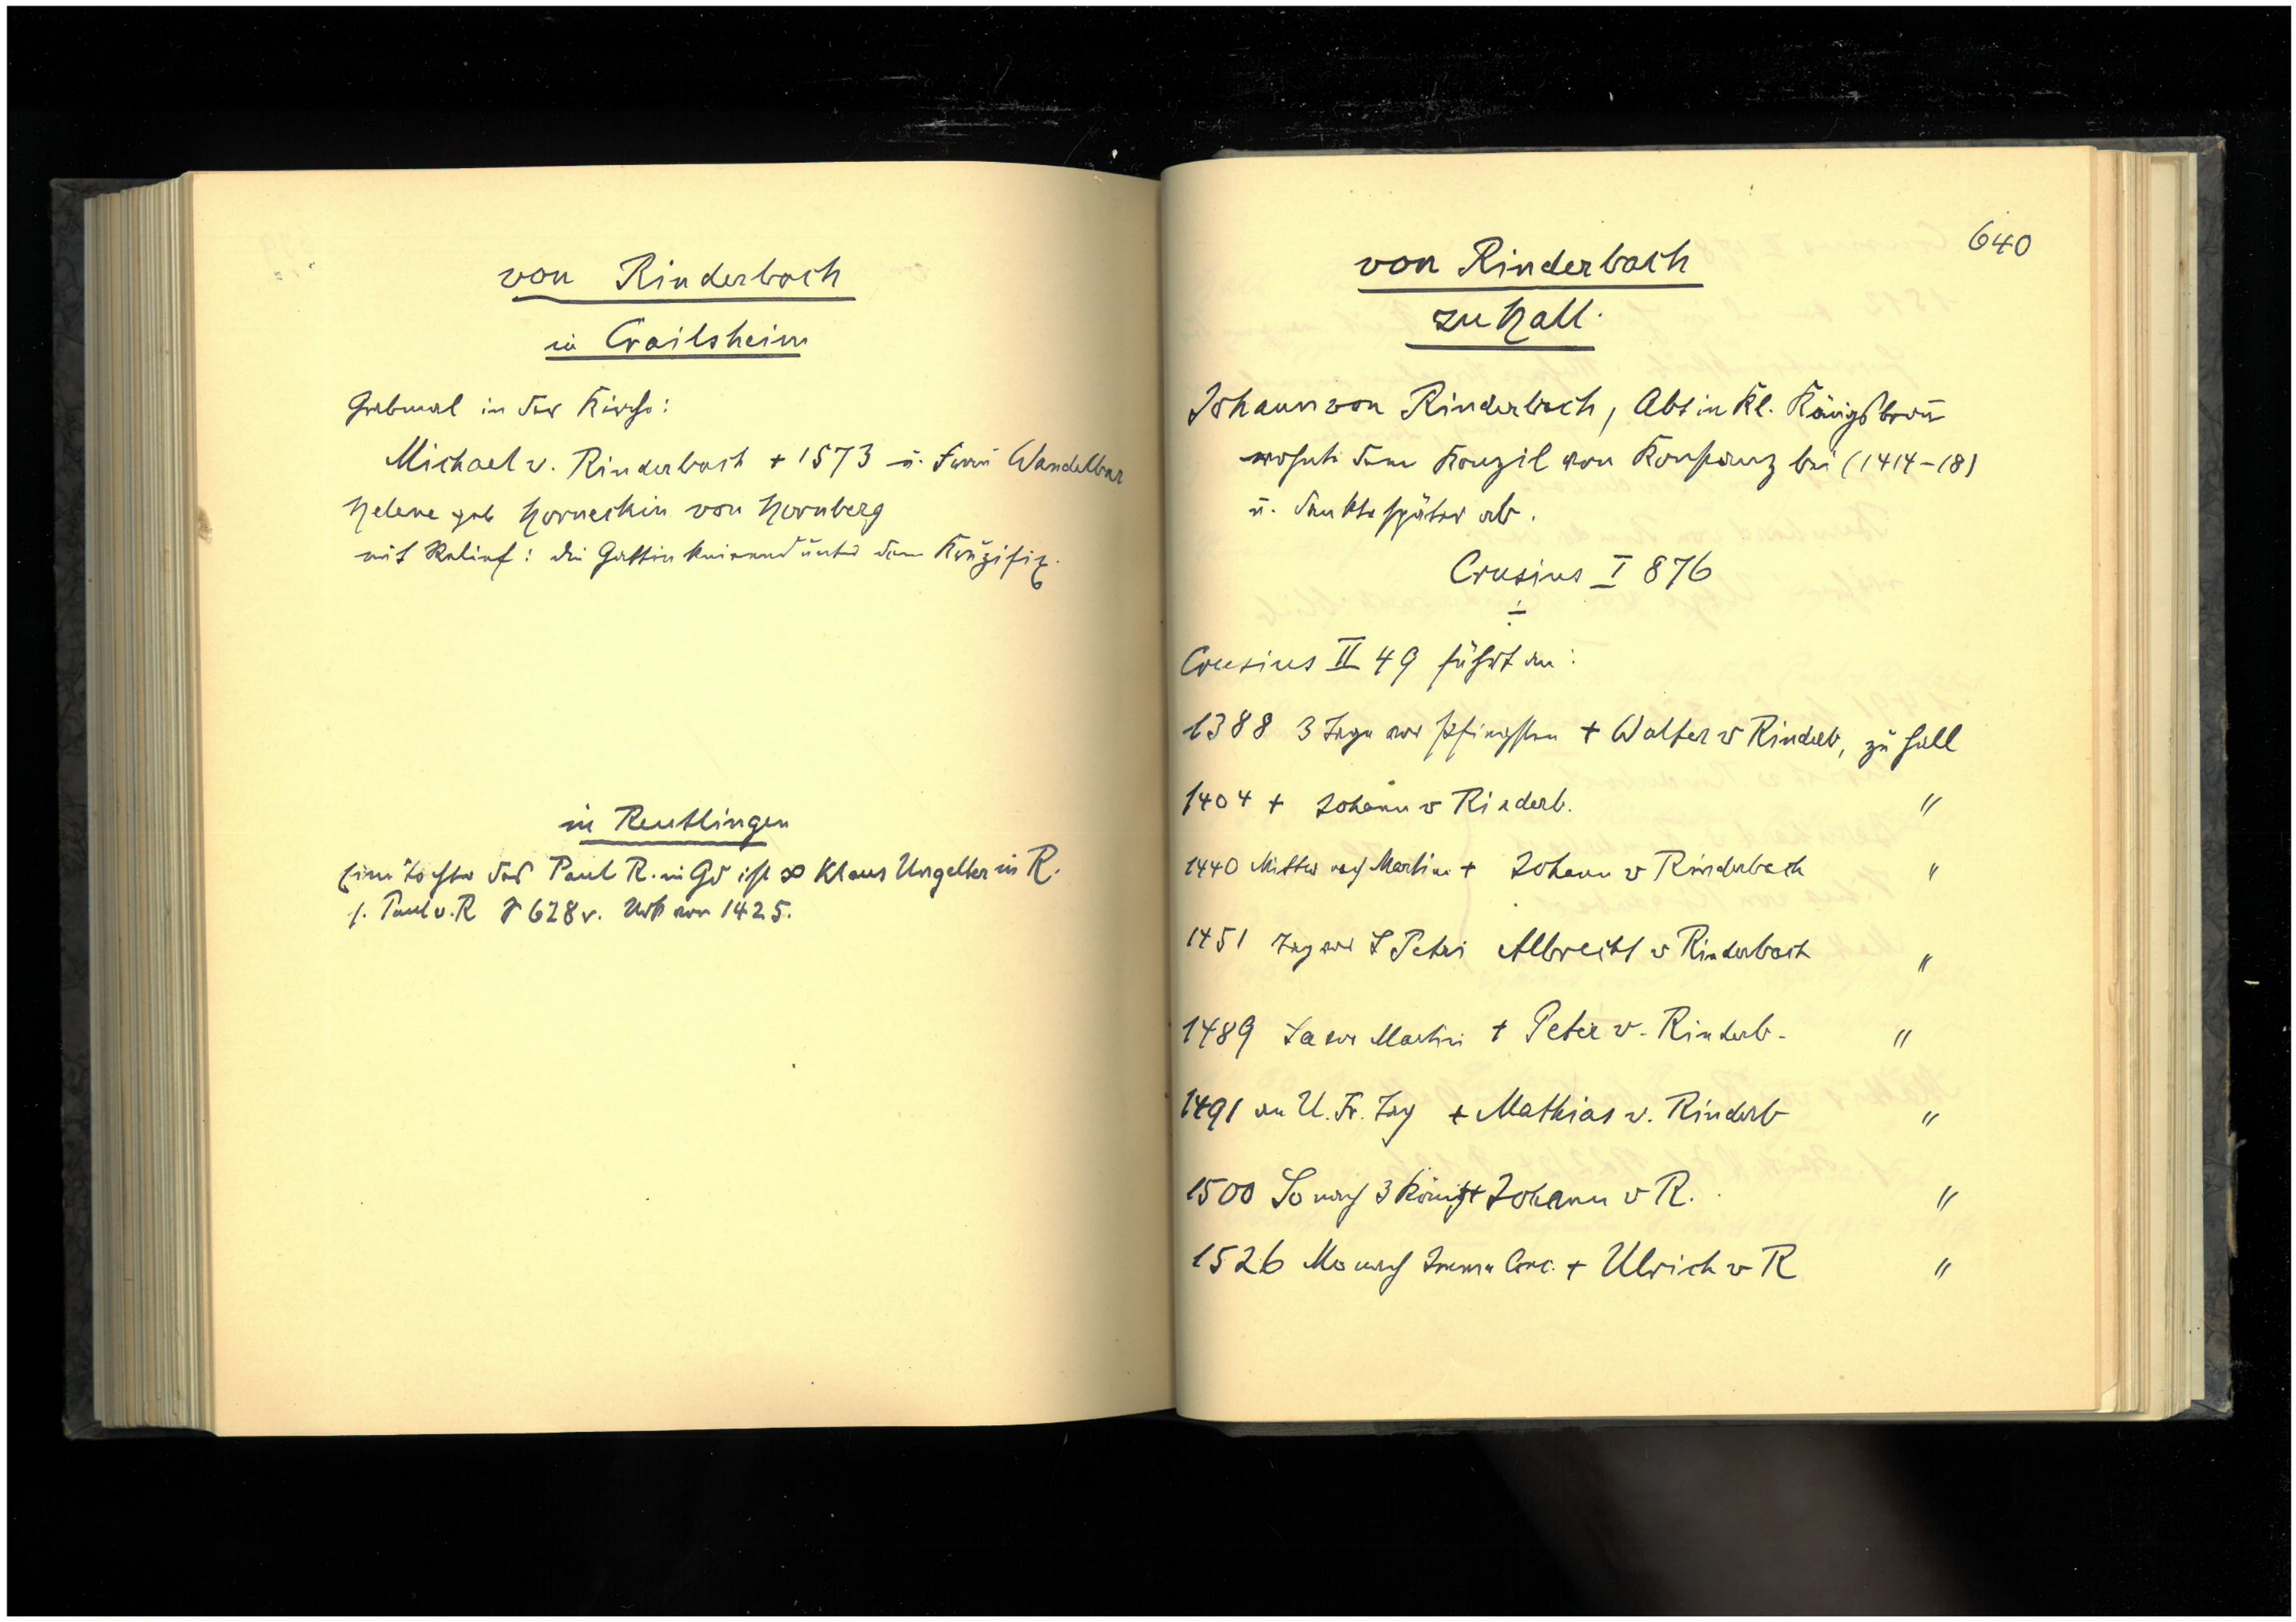 von Rinderbach
in Crailsheim
Grabmal in der Kirche:
Michael v. Rinderbach + 1573 u. Frau Wandelbar
Helene geb Horneckin von Hornberg
mit Relief: die Gattin knieend unter dem Kruzifix.
in Reutlingen
Eine Tochter des Paul R. in Gd ist ∞ Klaus Ungelter in R.
s. Paul v. R 628v. Urk von 1425.
640
von Rinderbach
zu Hall.
Johann von Rinderbach, Abt in Kl. Königsbronn
wohnte dem Konzil von Konstanz bei (1414-18)
u. dankte später ab.
Crusius I 876
Crusius II 49 führt an:
1388 3 Tage vor Pfingsten + Walter v Rinderb, zu Hall
1404 + Johann v Rinderb. "
1440 Mittw nach Martini + Johann v Rinderbach "
1451 Tag vor S Petri Albrecht v Rinderbach "
1489 Sa vor Martini + Peter v. Rinderb. "
1491 an U. Fr. Tag + Mathias v. Rinderb "
1500 So nach 3 König + Johann v R. "
1526 Mo nach Conc. + Ulrich v R "